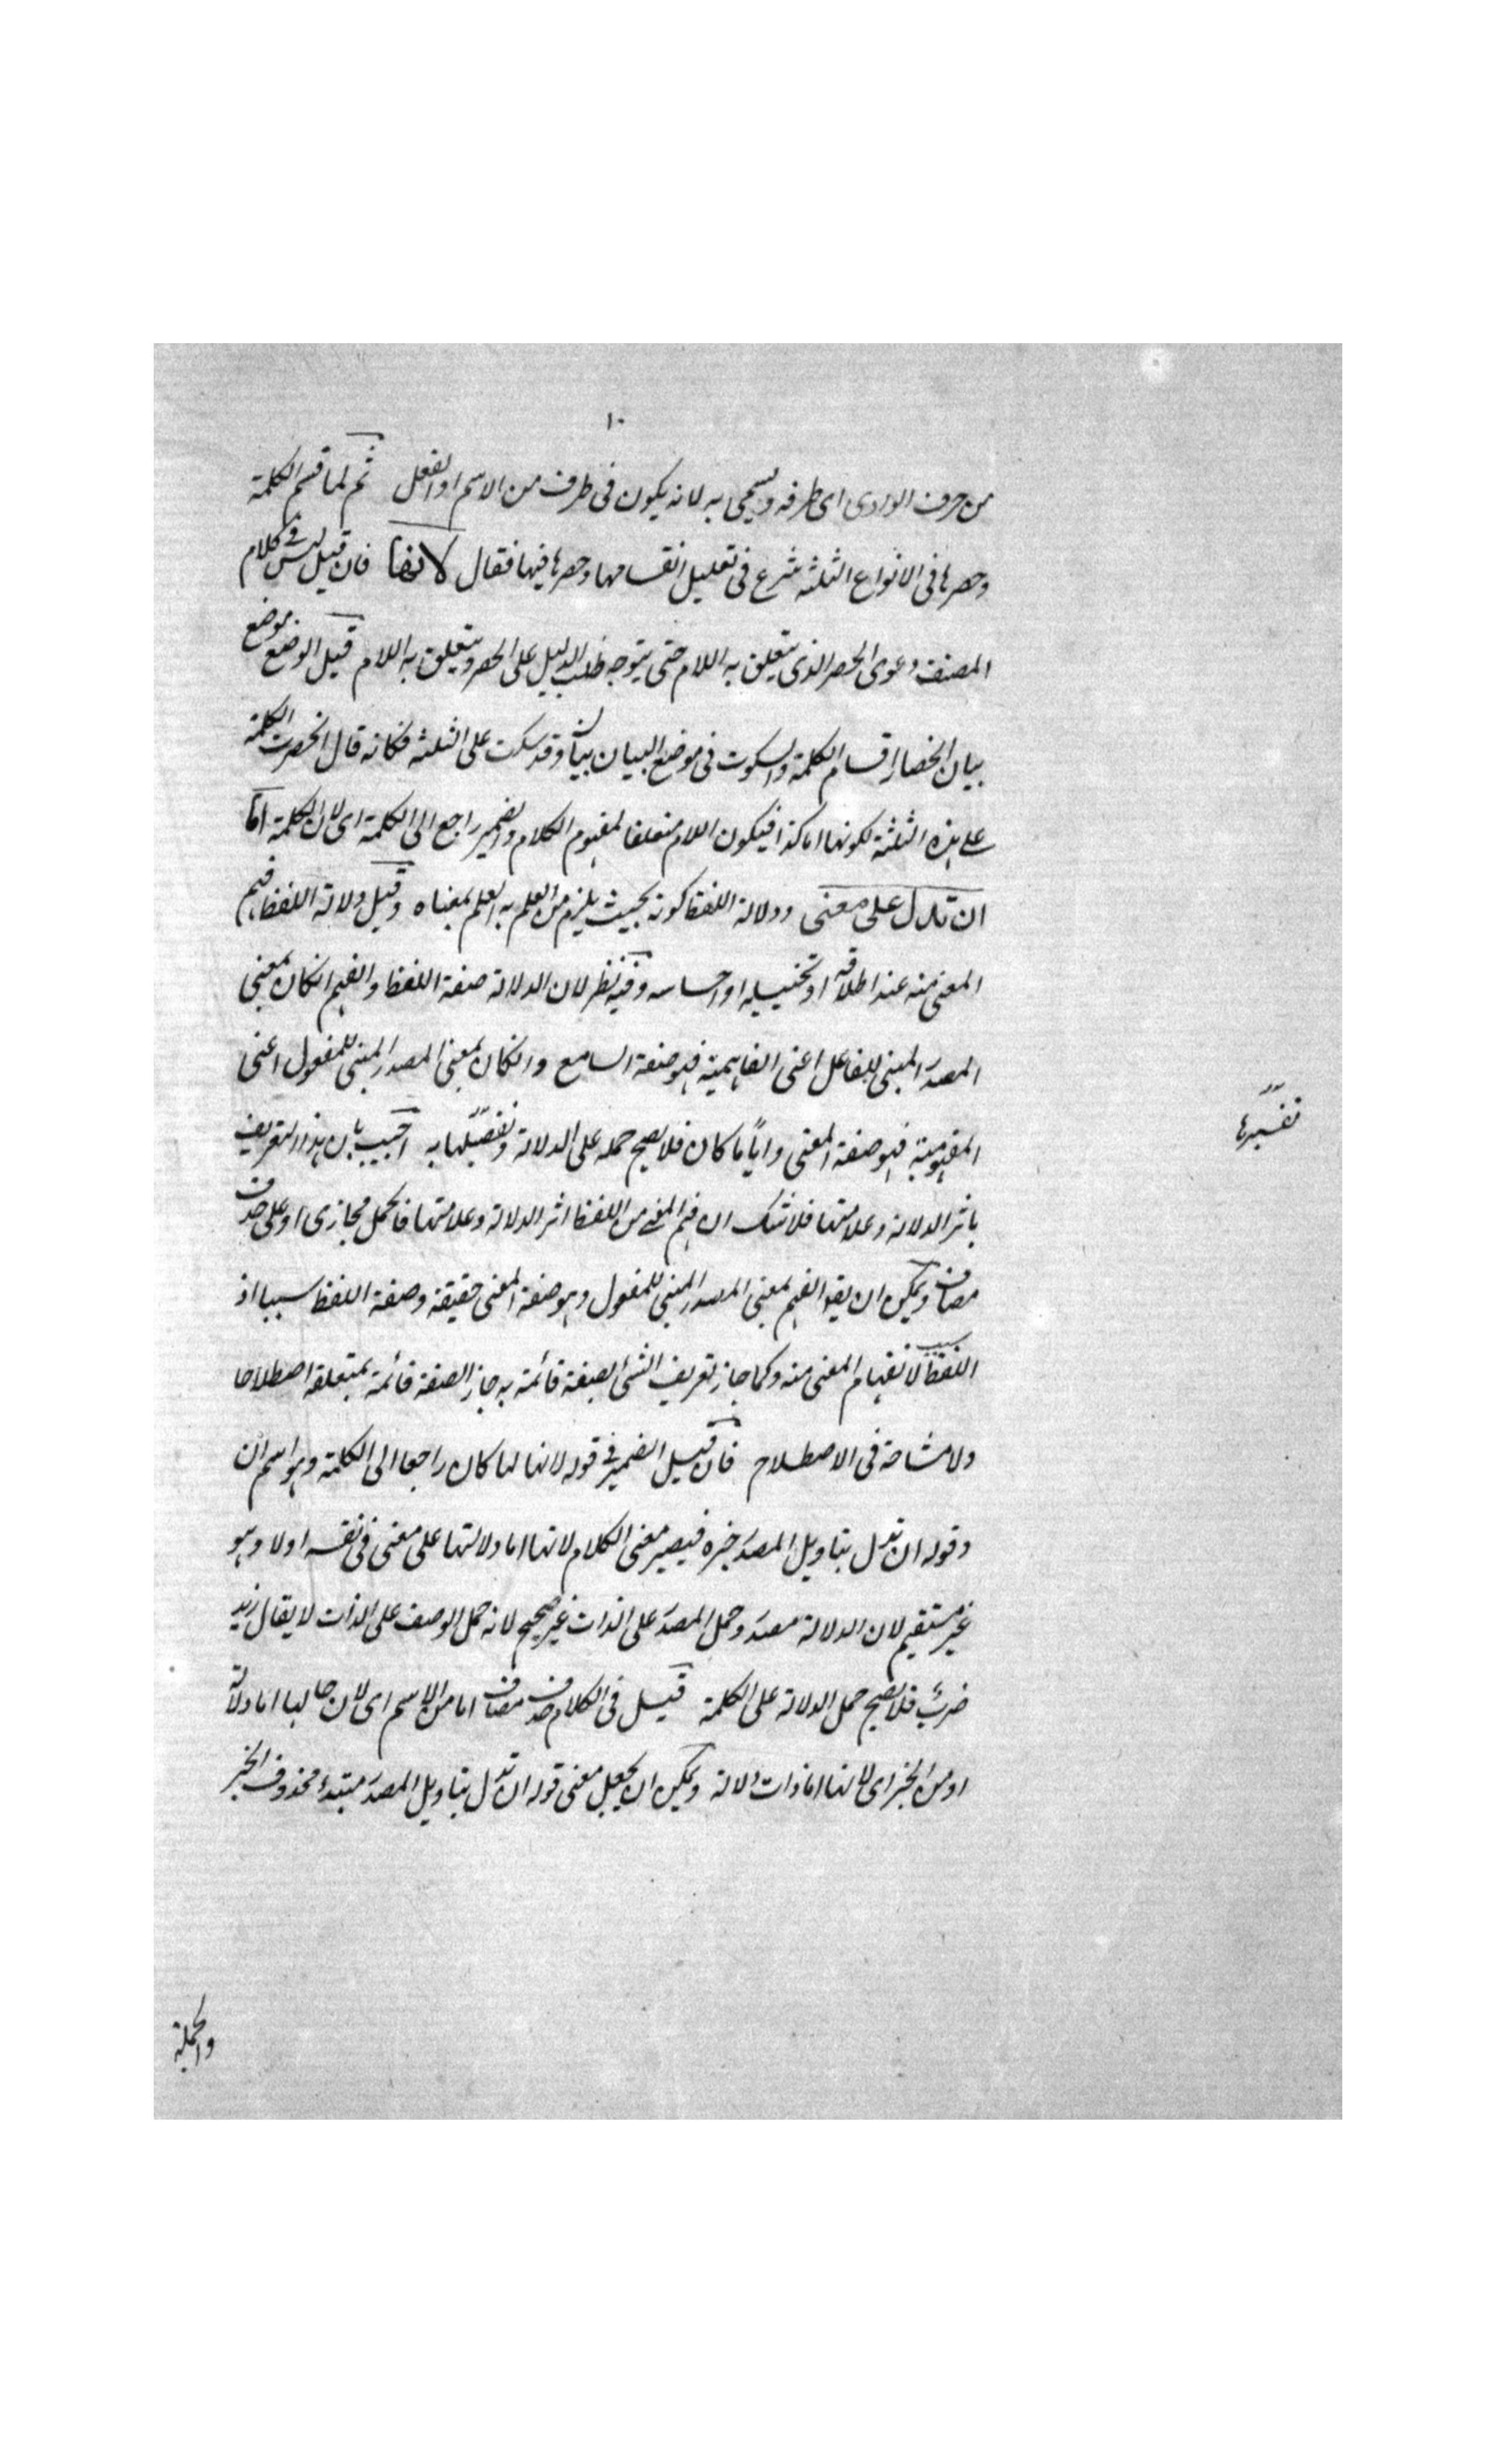 ١٠
من حرف الوادى اى طرفه ويسمى به لانه يكون فى طرف من الاسم او الفعل ثم لما قسم الكلمة
وحصرها فى الانواع الثلثة شرع فى تعليل انقسامها وحصرها فيها فقال لانها فان قيل ليس فى كلام
المصنف دعوى الحصر الذى يتعلق به اللام حتى يتوجه طلب الدليل على الحصر ويتعلق به اللام قيل الوضع موضع
بيان انحصار اقسام الكلمة والسكوت فى موضع البيان بيان وقد سكت على الثلثة فكانه قال انحصرت الكلمة
على هذه الثلثة لكونها اما كذا فيكون اللام متعلقا لمفهوم الكلام والضمير راجع الى الكلمة اى لان الكلمة اما
ان تدل على معنى ودلالة اللفظ كونه بحيث يلزم من العلم به العلم بمعناه وقيل دلالة اللفظ فهم
المعنى منه عند اطلاقه او تخييله او احساسه وفيه نظر لان الدلالة صفة اللفظ والفهم انكان بمعنى
المصدر المبنى للفاعل اعنى الفاهمية فهو صفة السامع وانكان بمعنى المصدر المبنى للمفعول اعنى
المفهومية فهو صفة المعنى واياً ما كان فلا يصح حمله على الدلالة وتفصيلها به اجيب بان هذا التعريف
باثر الدلالة وعلامتها فلا شك ان فهم المعنى من اللفظ اثر الدلالة وعلامتها فالحمل مجازى او على حذف
مضاف ويمكن ان يقه الفهم بمعنى المصدر المبنى للمفعول وهو صفة المعنى حقيقة وصفة اللفظ سببا اذ
اللفظ سبب لانفهام المعنى منه وكما جاز تعريف الشئ بصفة قائمة به جاز الصفة قائمة بمتعلقه اصطلاحا
ولا مشاحة فى الاصطلاح فان قيل الضمير فى قوله لانها لما كان راجعا الى الكلمة وهو اسم ان
وقوله ان تدل بتاويل المصدر خبره فيصير معنى الكلام لانها اما دلالتها على معنى فى نفسه اولا وهو
غير مستقيم لان الدلالة مصدر وحمل المصدر على الذات غير صحيح لانه حمل الوصف على الذات لا يقال زيد
ضرب فلا يصح حمل الدلالة على الكلمة قيل فى الكلام حذف مضاف اما من الاسم اى لان حالها اما دلالة
او من الخبر اى لانها اما ذات دلالة ويمكن ان يجعل معنى قوله ان تدل بتاويل المصدر مبتدء محذوف الخبر
تفسيرها
والجملة